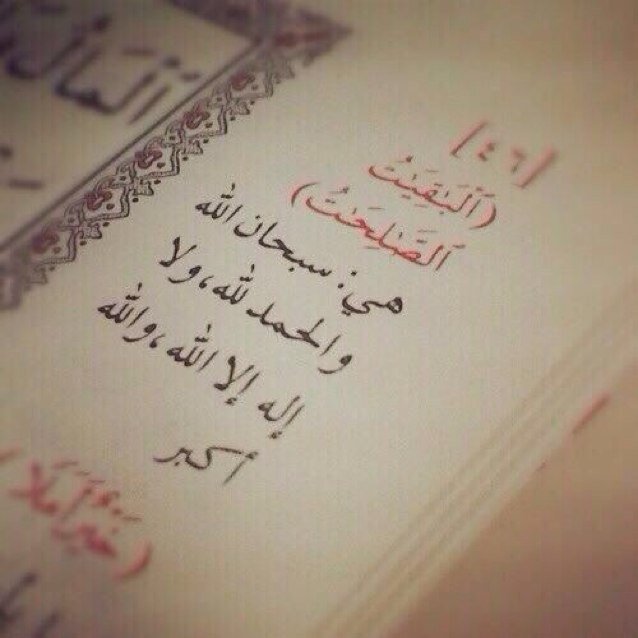 ٱلْمَالُ
[٤٦]
(ٱلْبَٰقِيَٰتُ
ٱلصَّٰلِحَٰتُ)
هي: سبحان الله
والحمد لله، ولا
إله إلا الله، والله
أكبر
(خَيْرٌ أَمَلًا